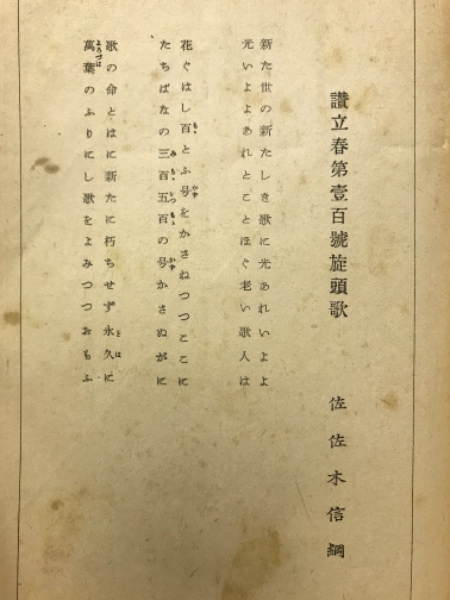 讃立春第壹百號旋頭歌
佐佐木信綱
新た世の新たしき歌に光あれいよよ
光いよよあれとことほぐ老い歌人は
花ぐはし百とふ号をかさねつつここに
たちばなの三百五百の号かさぬがに
歌の命とはに新たに朽ちせず永久に
萬葉のふりにし歌をよみつつおもふ